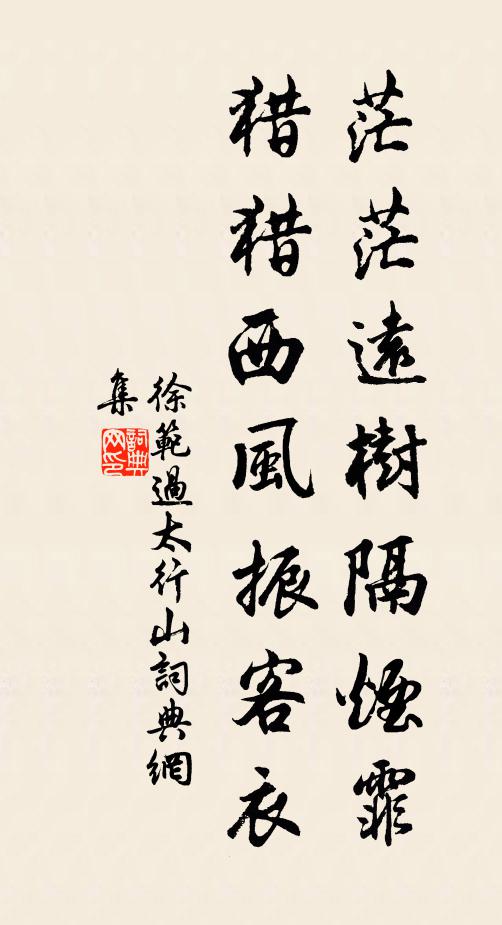 茫茫遠樹隔煙霏
猎猎西風振客衣
徐範過太行山詞典網
集
詞典网印